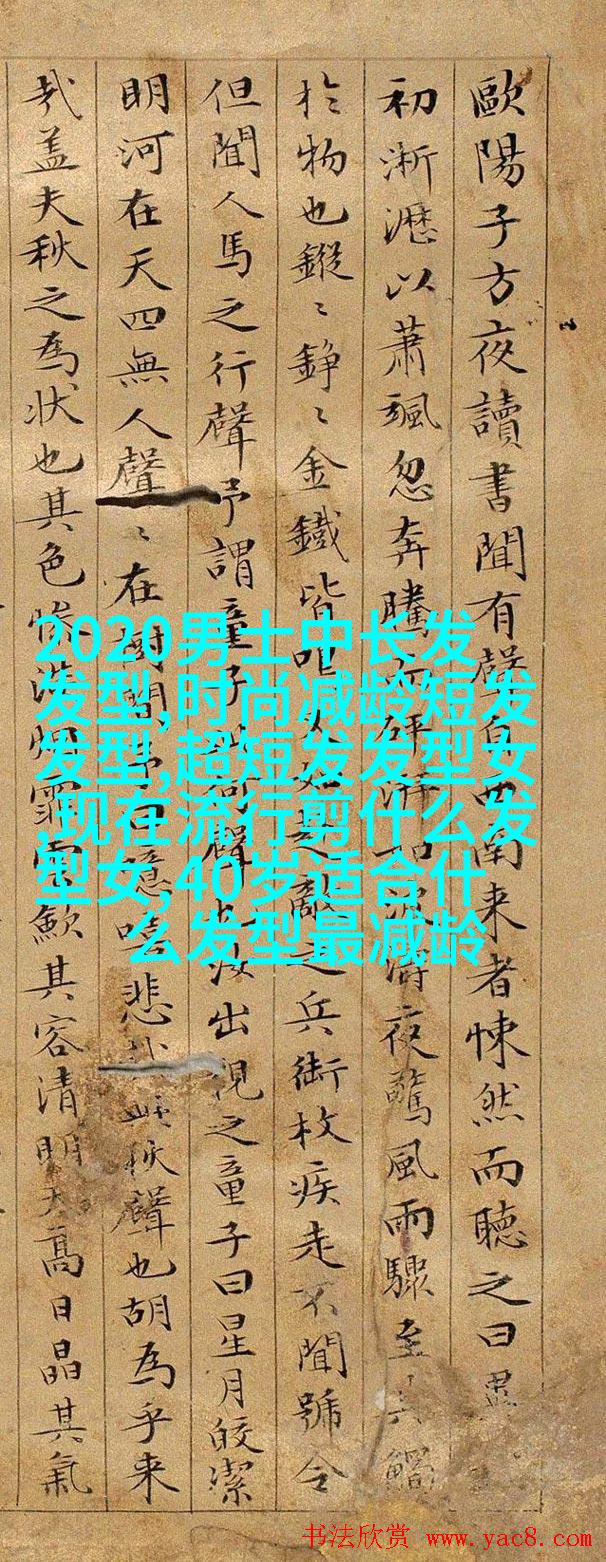 歐陽子方夜讀書聞有聲自西南来者悚然而聴之曰異
初淅瀝以蕭颯忽奔騰而砰湃如波濤夜驚風雨驟至其觸
扵物也鏦〻錚〻金鐵皆鳴又如敵之兵銜枚疾走不聞號令
但聞人馬之行聲予謂童子此何聲也汝出視之童子曰星月皎潔
明河在天四無人聲〻在樹間予曰噫嘻悲哉此秋聲也胡為乎来
哉盖夫秋之為狀也其色慘淡烟霏雲歛其容清明天高日晶其氣
2020男士中长发
发型,时尚减龄短发
发型,超短发发型女
,现在流行剪什么发
型女,40岁适合什
么发型最减龄
书法欣赏 www.yac8.com